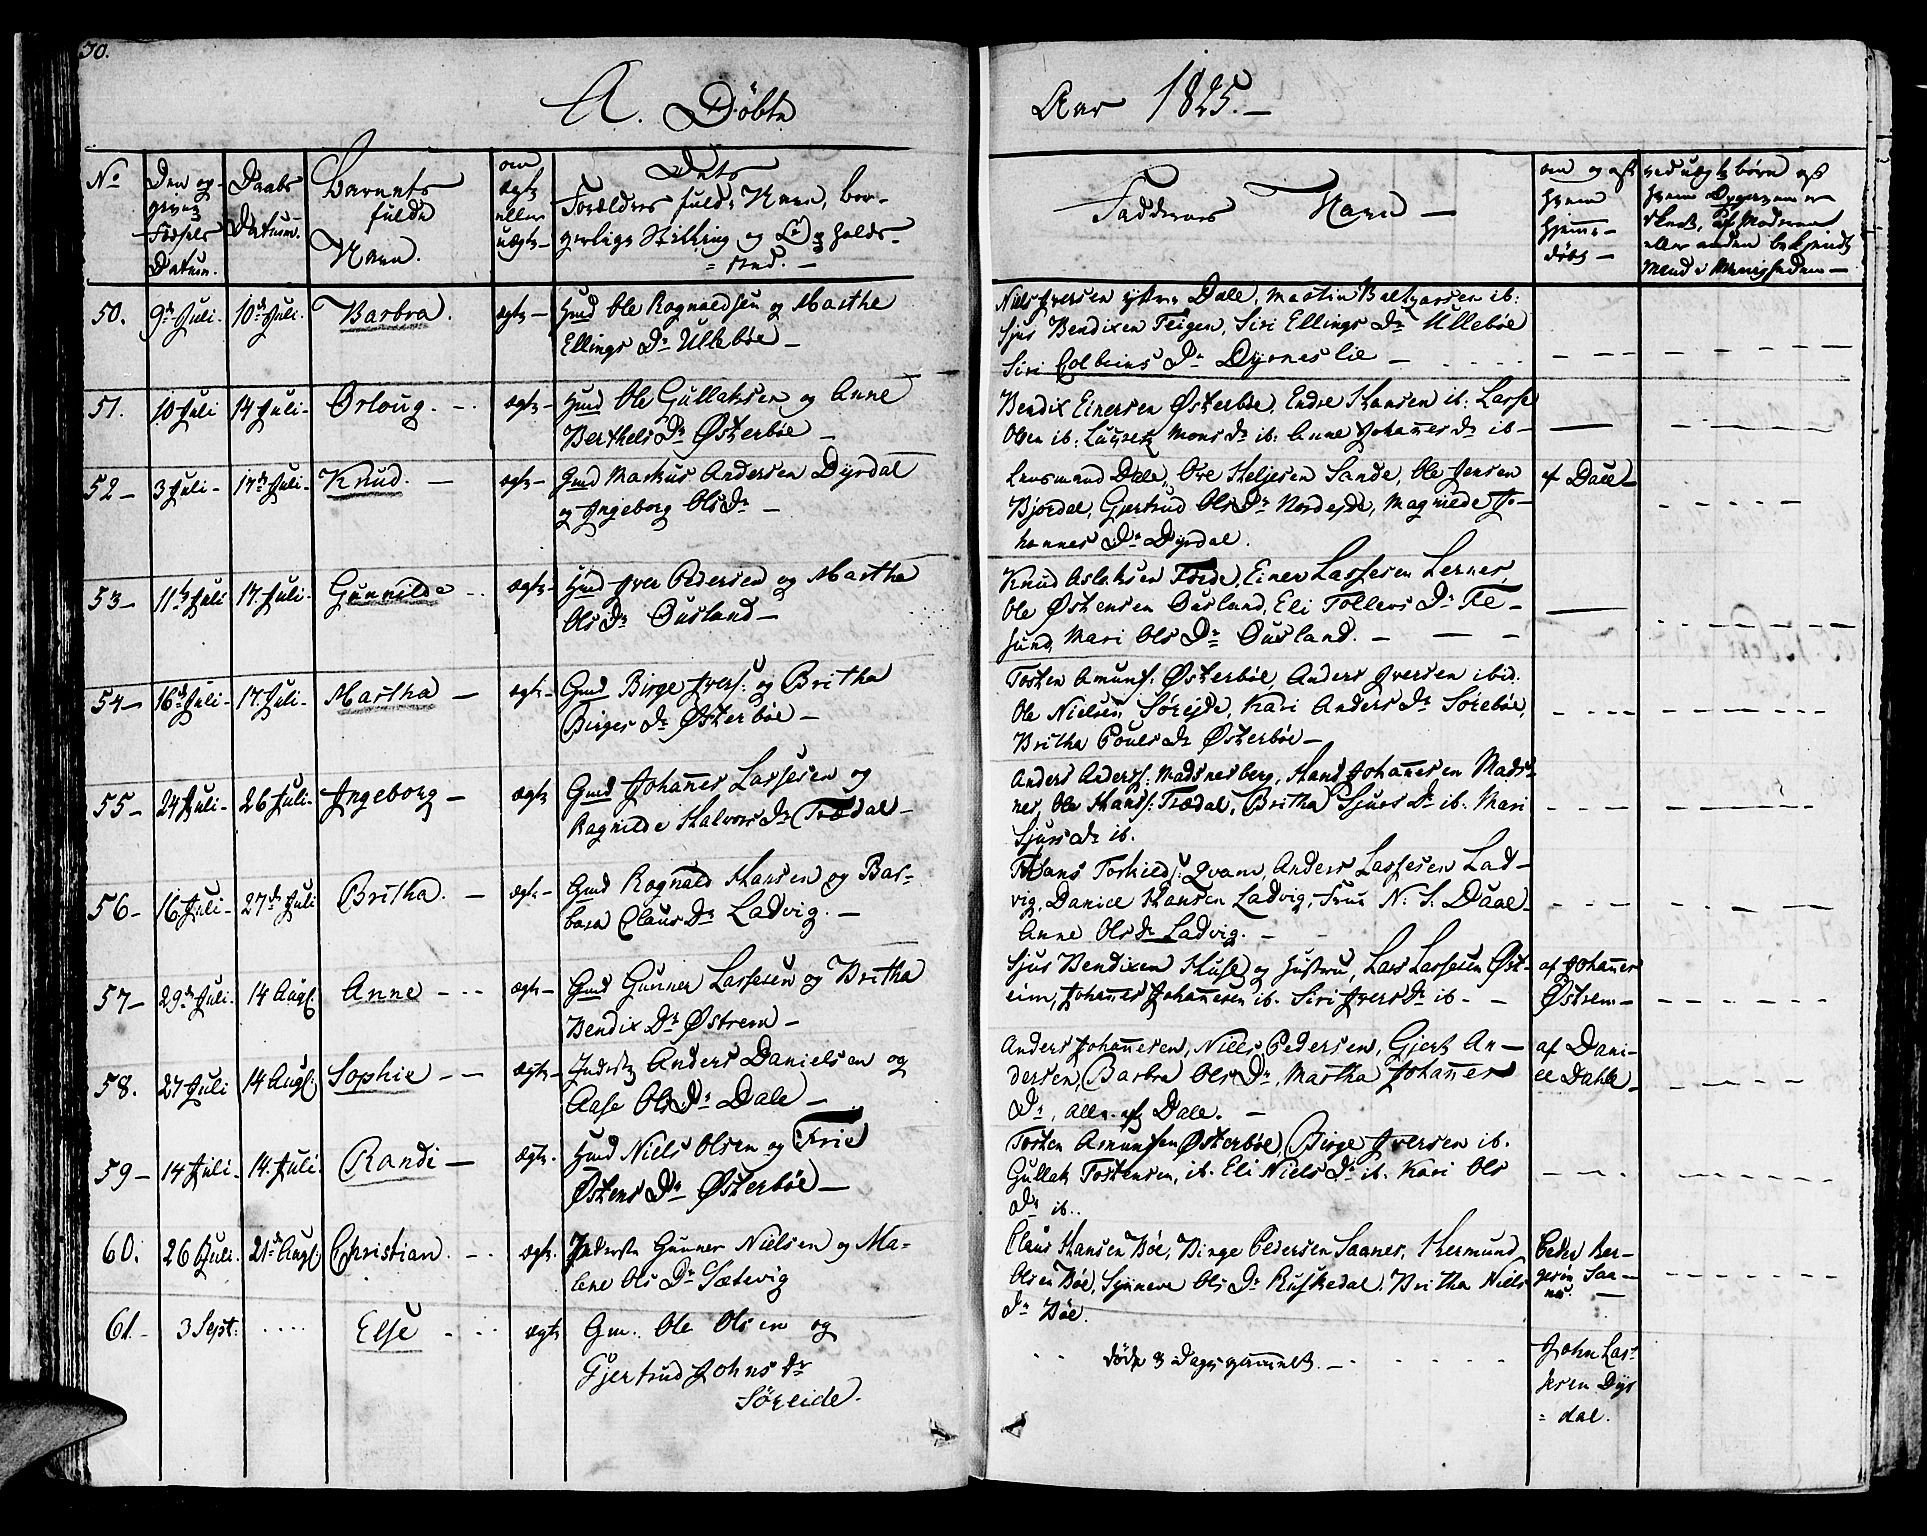 50.
A. Döbte
Aar 1825.
No
Den op-
given
Födsels
Datum.
Daabs
Datum.
Barnets
fulde
Navn.
om
ægte
eller
uægte
Dets
Forældres fulde Navn, bor-
gerlige Stilling og Opholds-
sted.
Faddernes Navn
om og af
hvem
hjemme-
döbt
ved uægte börn af
eller anden bekjendt
Mand i Menigheden
50. 9de Juli. 10de Juli. Barbra. ægte Gmd Ole Rognaldsen og Marthe
Ellings Dr Ullebøe
Niels Iversen Dale, Martin Baltzarsen ib:
Sjus Bendixen Teigen, Siri Ellings Dr Ullebøe
Siri Colbeins Dr Dyrneslie
51. 10 Juli 14 Juli Örloug. ægte Gmd Ole Gullaksen og Anne
Berthels Dr Østerbøe
Bendix Einersen Østerbøe, Endre Hansen ib: Lasse
Olsen ib: Mons Dr ib: Anne Johannes Dr ib
52 3 Juli 17de Juli Knud. ægte Gmd Markus Andersen Dyrdal
og Ingeborg Ols Dr
Lensmand Dale, Ole Heljesen Sande, Ole Jensen
Bjordal, Gjertrud Ols Dr Nordejde, Magnilde Jo-
hannes Dr Dyrdal.
af Dale
53 11te Juli 17 Juli Gunnilde ægte Gmd Iver Pedersen og Martha
Ols Dr Ousland
Knud Aslaksen Förde, Einer Lassesen Lernes,
Ole Østensen Ousland, Eli Tollevs Dr Te-
sund, Mari Ols Dr Ousland.
54 16de Juli 17. Juli Martha ægte Gmd Birge Ivers: og Britha
Birges Dr Østerbøe
Tosten Amuns: Østerbøe Anders Iversen ibid.
Ole Nielsen Sörejde, Kari Anders Dr Sörebøe,
Britha Pouls Dr Østerbøe
55 24 Juli 26 Juli Ingeborg ægte Gmd Johannes Lassesen og
Ragnilde Halvors Dr Trædal
Anders Anders: Madsnesberg, Hans Johannesen Mads-
nes, Ole Hans: Trædal, Britha Sjurs Dr ib. Mari
Sjurs Dr ib.
56 16 Juli 27de Juli Britha. ægte Gmd Rognald Hansen og Bar-
bara Claus Dr Ladvig.
Hans Torkilds: Qvam, Anders Lassesen Lad-
vig, Daniel Hansen Ladvig, Frue N. S. Daae
Anne Ols Dr Ladvig.
57 29de Juli. 14 Augs. Anne ægte Gmd Gunner Lassesen og Britha
Bendix Dr Østrem
Sjus Bendixen Huse og Hustru, Lars Lassesen Øst-
eim, Johannes Johannesen ib. Siri Ivers Dr ib
af Johannes
Østrem
58. 27 Juli 14 Augs: Sophie ægte Inderste Anders Danielsen og
Aase Ols Dr Dale
Anders Johannesen, Niels Pedersen, Gjert An-
dersen, Barbra Ols Dr, Martha Johannes
Dr, alle af Dale.
af Dani-
el Dahle
59 14 Juli 14. Juli Randi ægte. Gmd Niels Olsen og Brie
Østens Dr Østerbøe
Tosten Amunsen Østerbøe, Birge Iversen ib.
Gullak Tostensen, ib. Eli Niels Dr ib. Kari Ols
Dr ib.
60. 26 Juli. 21de Augs: Christian. ægte. Inderste Gunner Nielsen og Ma-
lene Ols Dr Sætevig
Claus Hansen Bøe, Birge Pedersen Saanes, Hermund
Olsen Bøe, Synneve Ols Dr Ruskedal. Britha Niels
Dr Bøe.
Peder Ber-
gesön Saa-
nes.
61. 3 Sept: Else ægte Gm. Ole Olsen og
Gjertrud Johns dr
Söreide.
döde 3 Dage gammelt.
John Las-
sesen Dyr
dal.